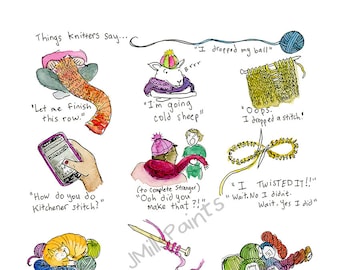 Things knitters say...
"I dropped my ball"
Brrr
"Let me finish
this row."
"I'm going
cold sheep"
"Oops.
I dropped a stitch!"
"How do you do
Kitchener stitch?"
(to complete stranger)
"Ooh did you
make that?!"
"I TWISTED IT!!"
"Wait. No I didn't.
Wait. Yes I did"
JMillPaints